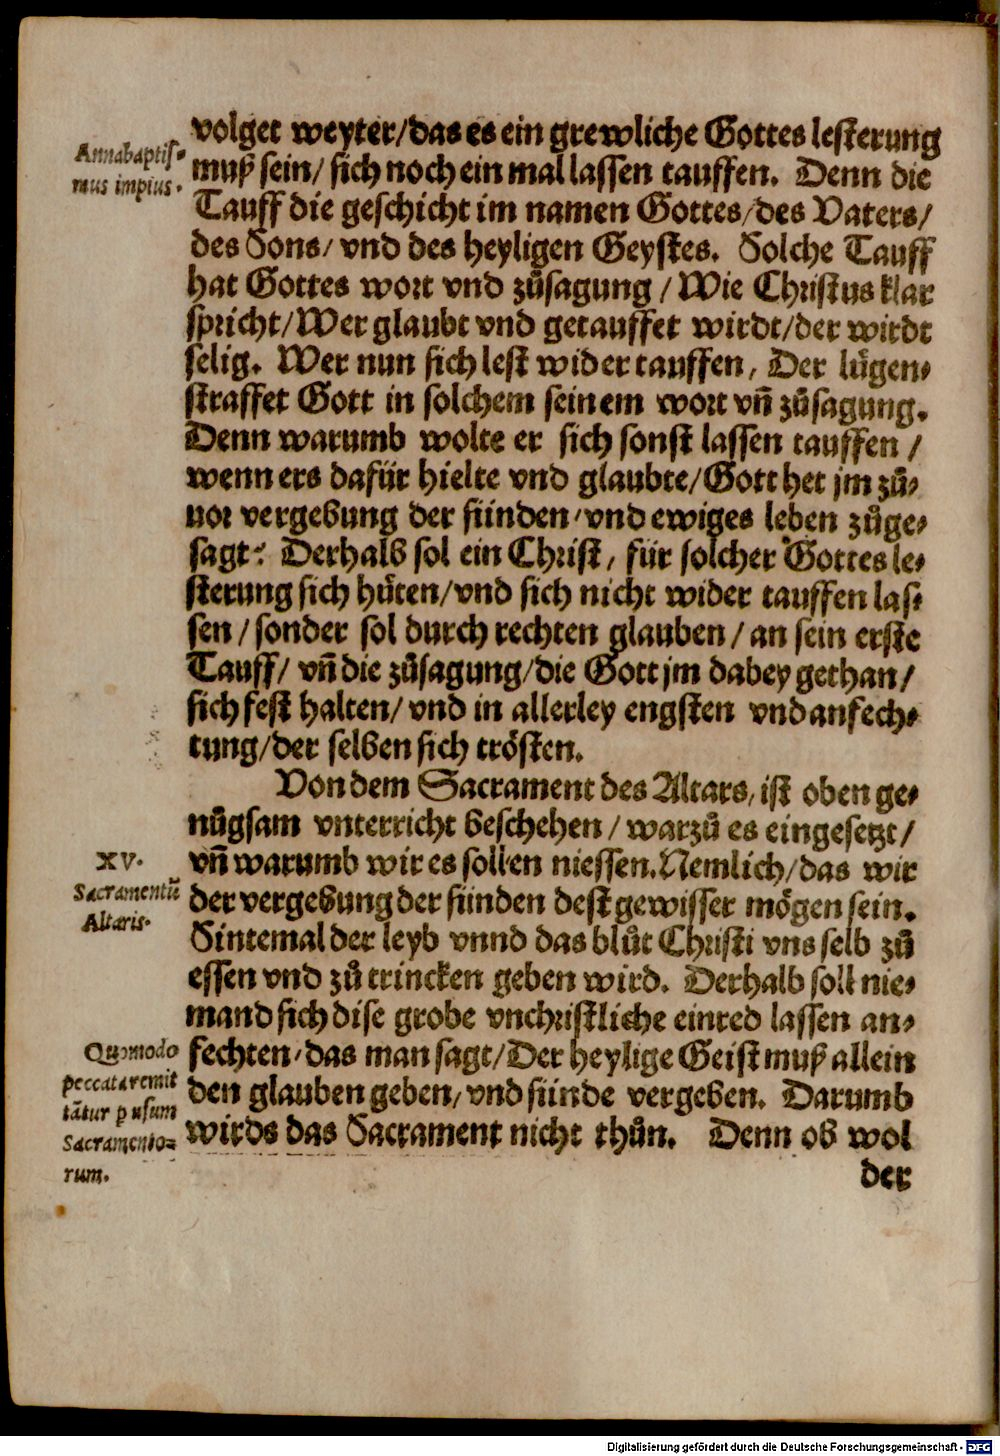 volget weyter/das es ein grewliche Gottes lesterung
Annabaptis-
mus impius.
muß sein/ sich noch ein mal lassen tauffen. Denn die
Tauff die geschicht im namen Gottes/des Vaters/
des Sons/ vnd des heyligen Geystes. Solche Tauff
hat Gottes wort vnd zůsagung / Wie Christus klar
spricht/Wer glaubt vnd getauffet wirdt/der wirdt
selig. Wer nun sich lest wider tauffen, Der lůgen-
straffet Gott in solchem seinem wort vñ zůsagung.
Denn warumb wolte er sich sonst lassen tauffen /
wenn ers dafür hielte vnd glaubte/Gott het jm zů-
uor vergebung der sünden/vnd ewiges leben zůge-
sagt? Derhalb sol ein Christ, für solcher Gottes le-
sterung sich hüten/vnd sich nicht wider tauffen las-
sen / sonder sol durch rechten glauben / an sein erste
Tauff/ vñ die zůsagung/die Gott jm dabey gethan/
sich fest halten/ vnd in allerley engsten vnd anfech-
tung/der selben sich trösten.
Von dem Sacrament des Altars, ist oben ge-
nůgsam vnterricht beschehen / warzů es eingesetzt/
XV.
Sacramentũ
Altaris.
vñ warumb wir es sollen niessen. Nemlich/das wir
der vergebung der sünden dest gewisser mögen sein.
Sintemal der leyb vnnd das blůt Christi vns selb zů
essen vnd zů trincken geben wird. Derhalb soll nie-
mand sich dise grobe vnchristliche einred lassen an-
Quomodo
peccata remit
tãtur p usum
Sacramento=
rum.
fechten/das man sagt/Der heylige Geist muß allein
den glauben geben/vnd sünde vergeben. Darumb
wirds das Sacrament nicht thůn. Denn ob wol
der
Digitalisierung gefördert durch die Deutsche Forschungsgemeinschaft - DFG